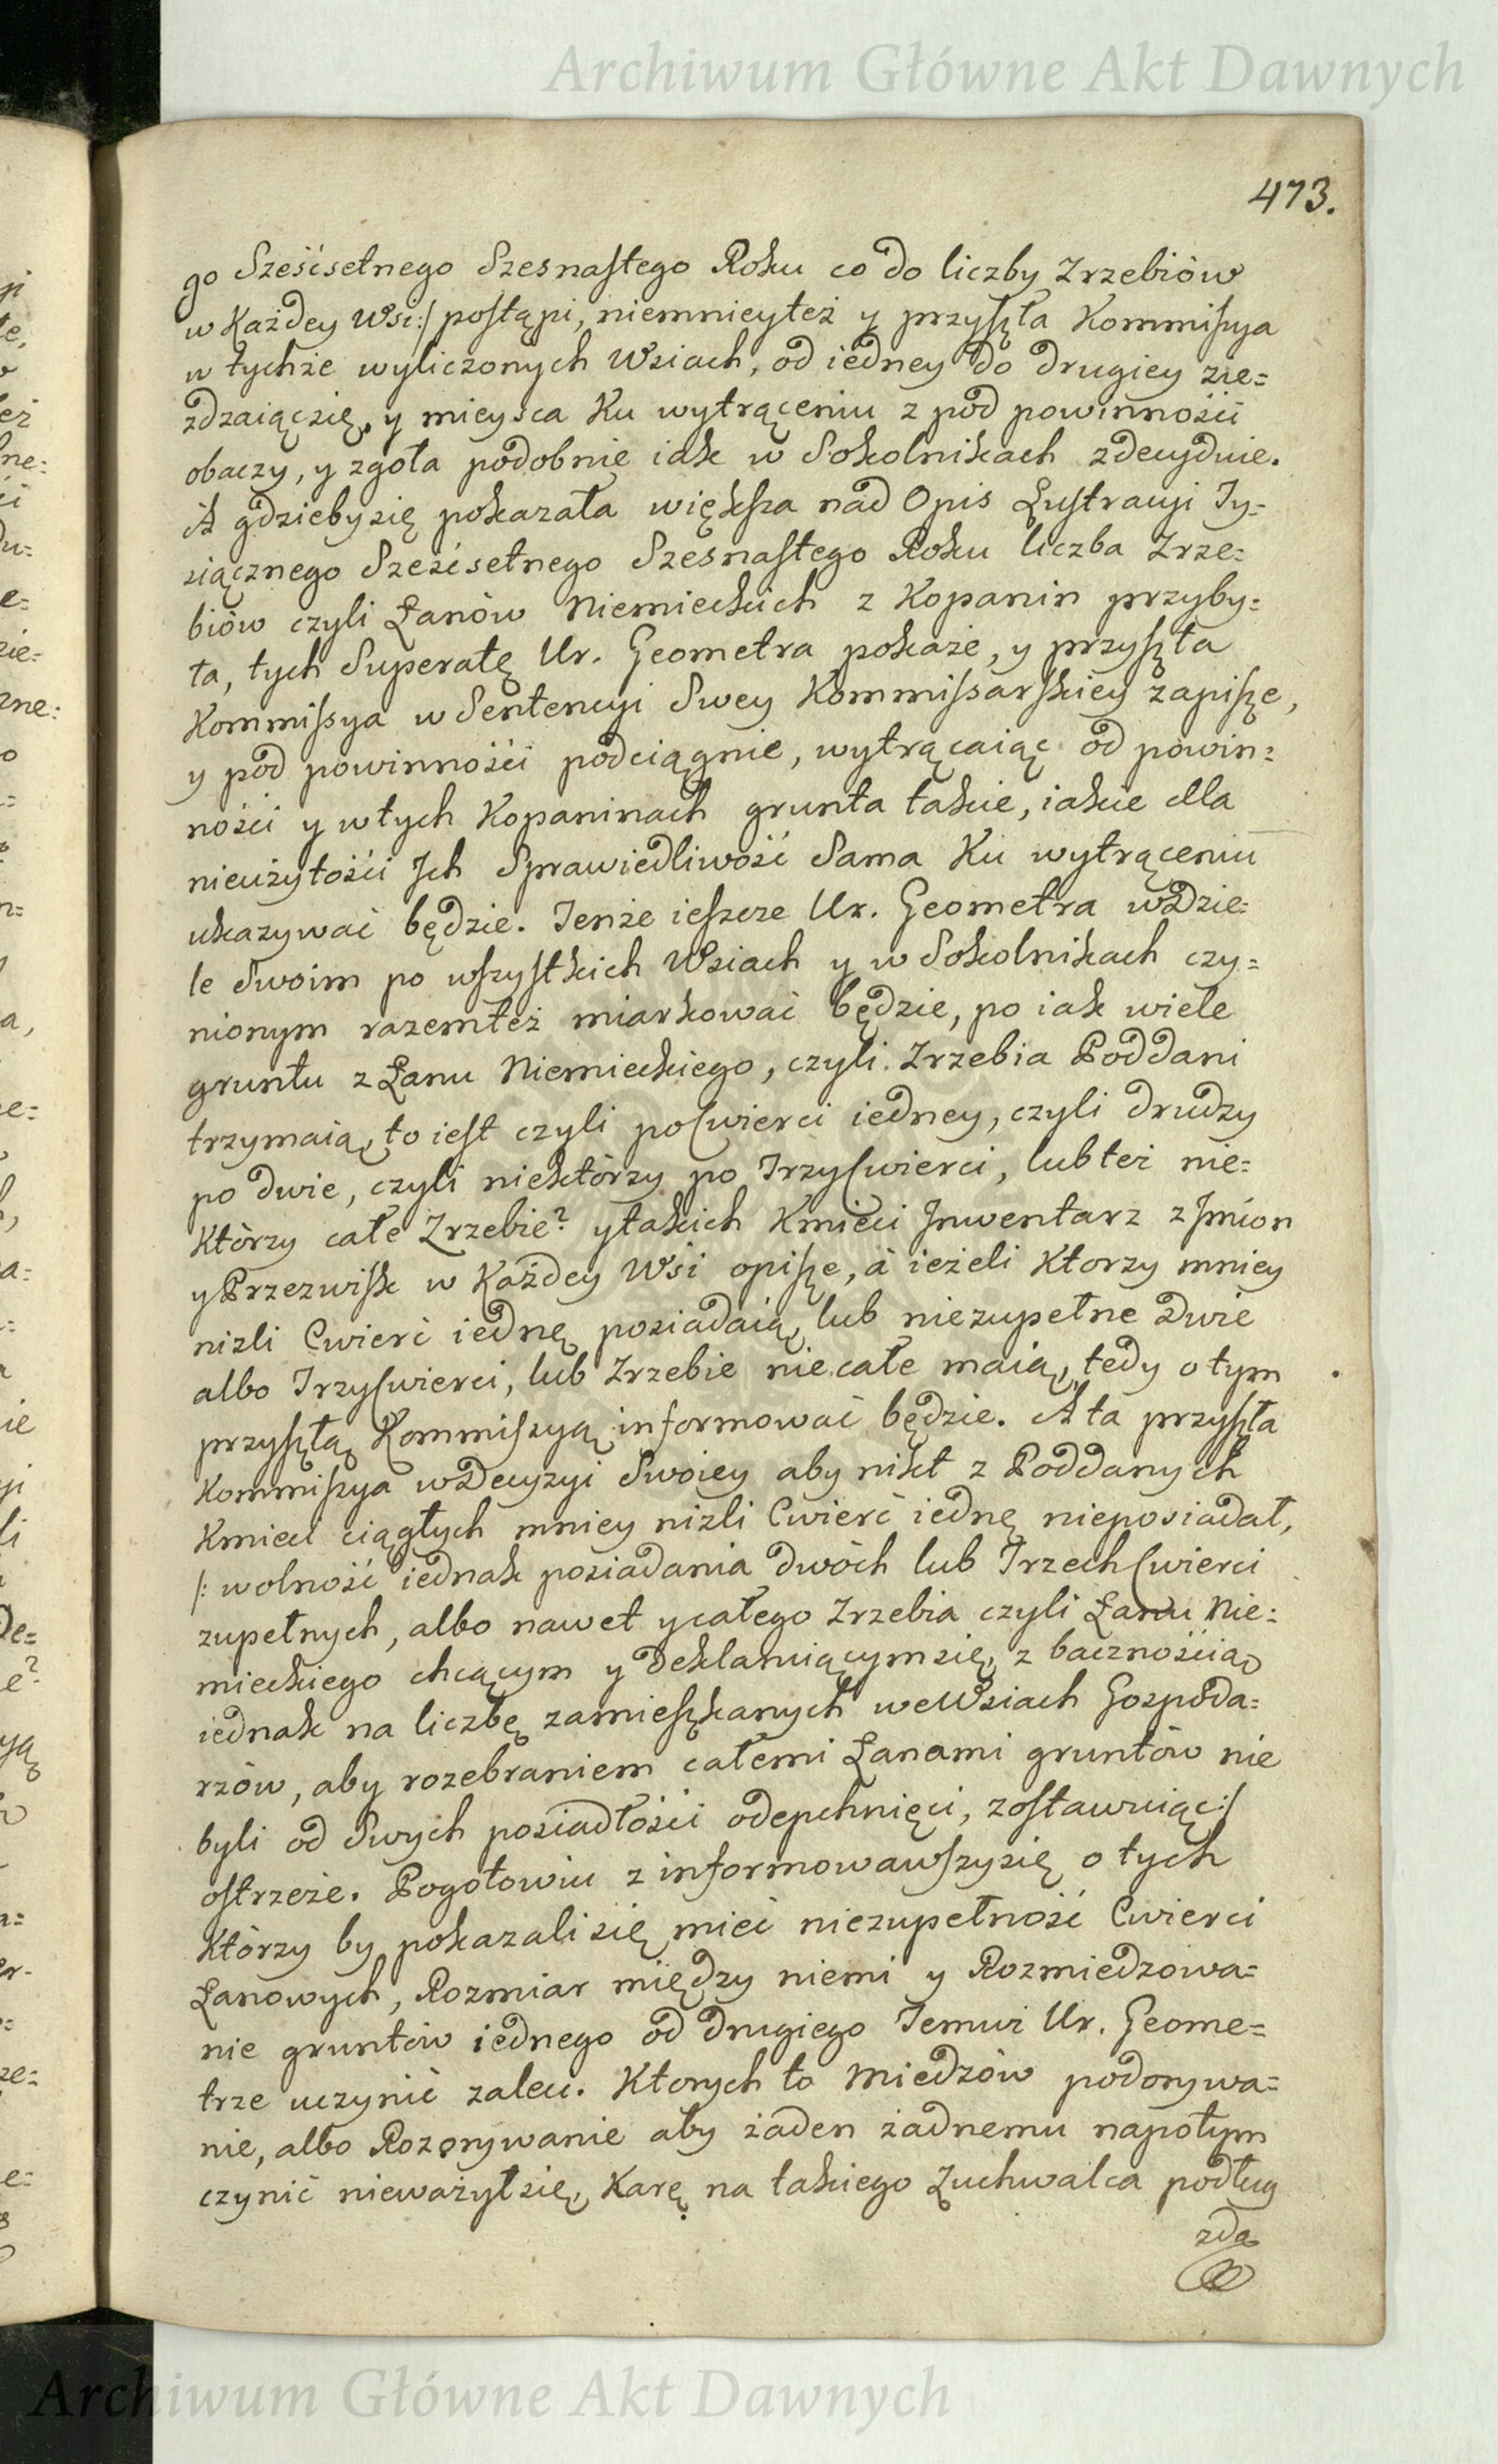 Archiwum Główne Akt Dawnych
473.
go Sześcsetnego Szesnastego Roku co do liczby Zrzebiów
w Każdey Wsi:/ postąpi, niemnieyteż y przyszła Kommissya
w tychże wyliczonych Wsiach, od iedney do drugiey zie=
zdzaiącsię, y mieysca Ku wytrąceniu z pod powinności
obaczy, y zgoła podobnie iak w Sokolnikach zdecyduie.
A gdzieby się pokazała większa nad Opis Lustracyi Ty=
siącznego Sześćsetnego Szesnastego Roku liczba Zrze=
biów czyli Łanów Niemieckich z Kopanin przyby=
ła, tych Superatę Ur. Geometra pokaże, y przyszła
Kommissya w Sentencyi Swey Kommissarskiey zapisze,
y pod powinności podciągnie, wytrącaiąc od powin=
ności y w tych Kopaninach grunta takie, iakie dla
nieużytości Ich Sprawiedliwość Sama Ku wytrąceniu
ukazywać będzie. Tenże ieszcze Ur. Geometra wdzie=
le Swoim po wszystkich Wsiach y w Sokolnikach czy=
nionym razemteż miarkować będzie, po iak wiele
gruntu z Łanu Niemieckiego, czyli Zrzebia Poddani
trzymaią, to iest czyli poćwierci iedney, czyli drudzy
po dwie, czyli niektórzy po Trzyćwierci, lubteż nie=
Którzy całe Zrzebie? ytakich Kmieci Inwentarz z Imion
yPrzezwisk w Każdey Wsi opisze, á ieżeli Ktorzy mniey
niżli Cwierć iednę posiadaią, lub niezupełne Dwie
albo Trzyćwierci, lub Zrzebie niecałe maią, tedy o tym
przyszłą Kommissyą informować będzie. A ta przyszła
Kommissya w Decyzyi Swoiey aby nikt z Poddanych
Kmieci ciągłych mniey niżli Cwierć iednę nieposiadał,
/: wolność iednak posiadania dwóch lub Trzech Cwierci
zupełnych, albo nawet ycałego Zrzebia czyli Łanu Nie=
mieckiego chcącym y deklaruiącymsię, z bacznością
iednak na liczbę zamieszkanych weWsiach Gospoda=
rzów, aby rozebraniem całemi Łanami gruntów nie
byli od Swych posiadłości odepchnięci, zostawuiąc:/
ostrzeże. Pogotowiu z informowawszysię o tych
Którzy by pokazali się mieć niezupełność Cwierci
Łanowych, Rozmiar między niemi y Rozmiedzowa=
nie gruntów iednego od drugiego Temuż Ur. Geome=
trze uczynić zaleci. Ktorych to Miedzów podorywa=
nie, albo Rozorywanie aby żaden żadnemu napotym
czynić nieważyłsię, Karę na takiego Zuchwalca podług
zda
Archiwum Główne Akt Dawnych